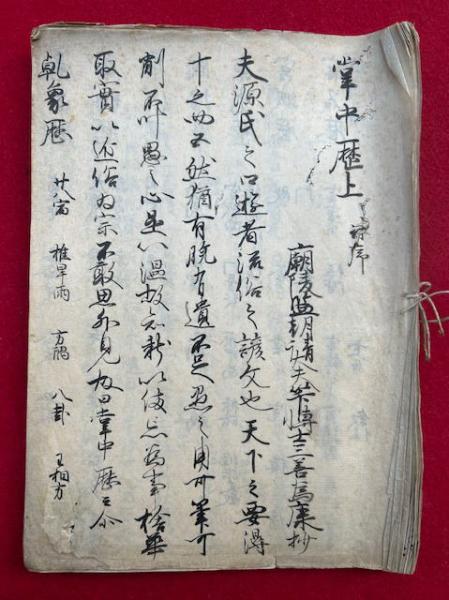 掌中歴上 并序
廟陵監朝請大夫笇博士三善為康抄
夫源氏之口遊者流俗之諺文也天下之要得
十之四五然猶有脱有遺不足愚之用可筆可
削不叶愚之心是以温故知新以備忘為事捨華
取實以近俗為宗不敢思外見故曰掌中歴云尒
乾象歴 廿八宿 推旱雨 方隅 八卦 王相方